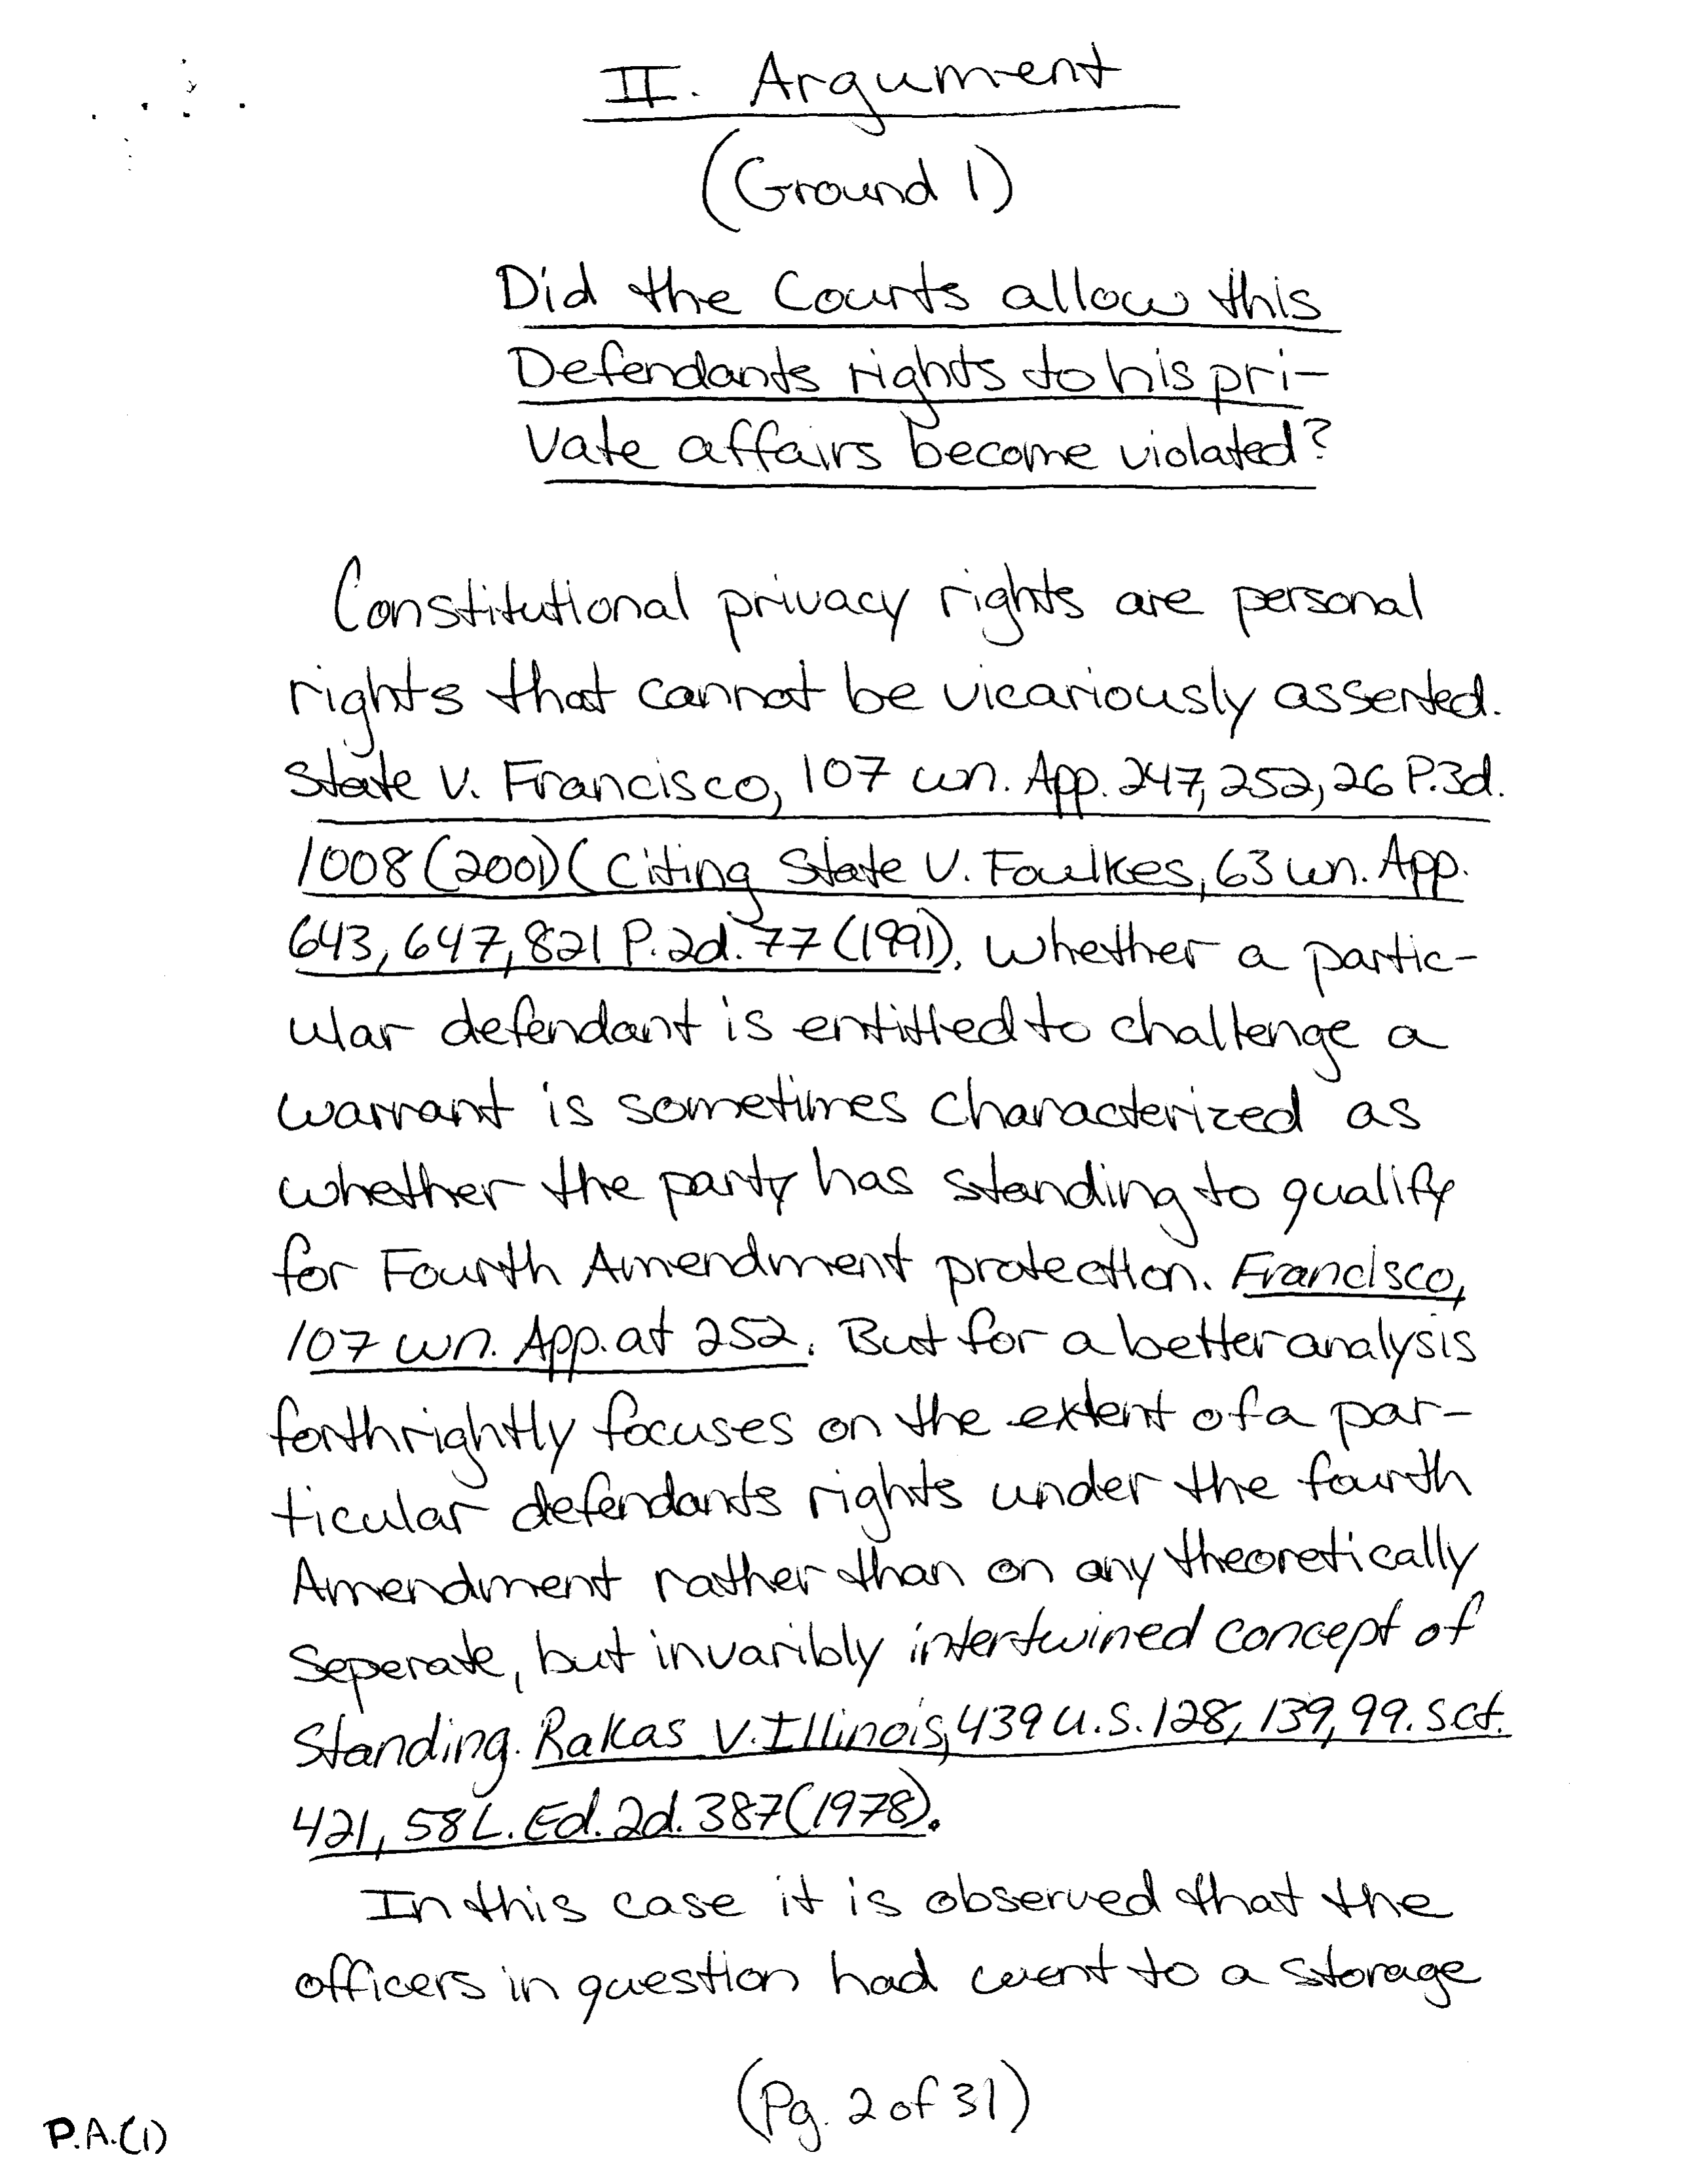 II. Argument
(Ground 1)
Did the Courts allow this
Defendants rights to his pri-
vate affairs become violated?
Constitutional privacy rights are personal
rights that cannot be vicariously asserted.
State v. Francisco, 107 wn. App. 247, 252, 26 P.3d.
1008 (2001) (Citing State v. Foulkes, 63 wn. App.
643, 647, 821 P.2d. 77 (1991). Whether a partic-
ular defendant is entitled to challenge a
warrant is sometimes characterized as
whether the party has standing to qualify
for Fourth Amendment protection. Francisco,
107 wn. App. at 252. But for a better analysis
forthrightly focuses on the extent of a par-
ticular defendants rights under the fourth
Amendment rather than on any theoretically
seperate, but invaribly intertwined concept of
standing. Rakas v. Illinois, 439 U.S. 128, 139, 99. S.ct.
421, 58 L. Ed. 2d. 387 (1978).
In this case it is observed that the
officers in question had went to a storage
(Pg. 2 of 31)
P.A.(1)